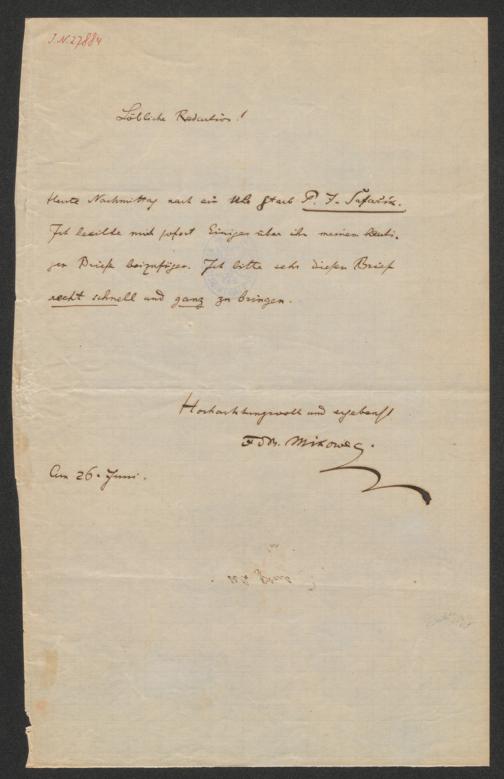 J.N.27884
Löbliche Redaction!
Heute Nachmittag nach ein Uhr starb P. J. Šafařik.
Ich beeilte mich sofort Einiges über ihn meinem heuti-
gen Briefe beizufügen. Ich bitte sehr diesen Brief
recht schnell und ganz zu bringen.
Hochachtungsvoll und ergebenst
Mikowec.
Am 26. Juni.